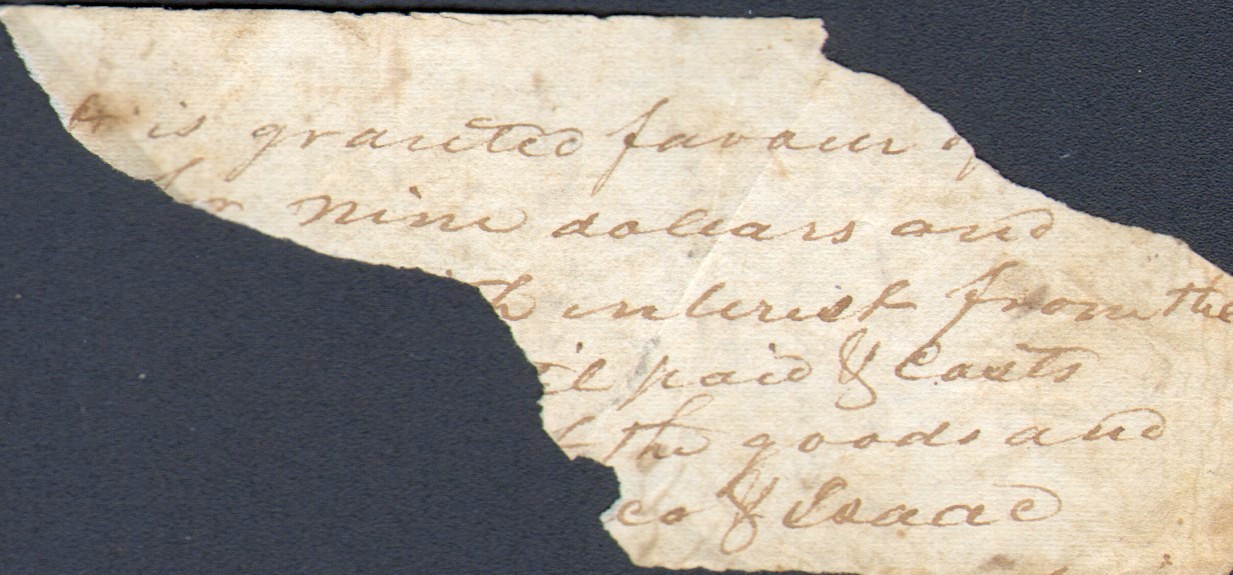 is granted favour of
nine dollars and
interest from the
paid & Costs
the goods and
& Isaac